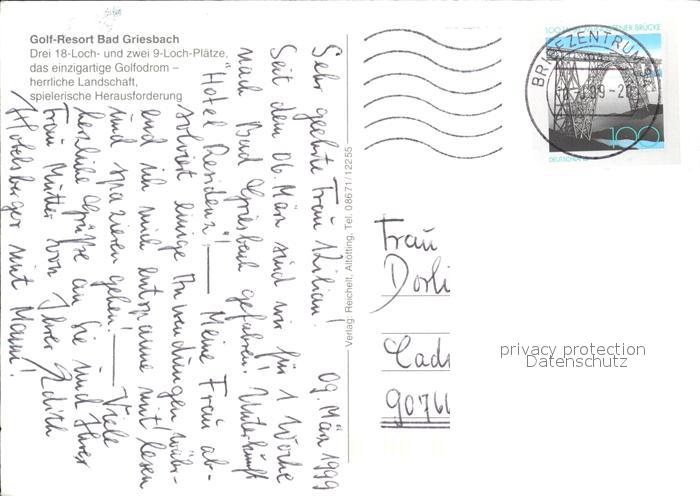 Golf-Resort Bad Griesbach
Drei 18-Loch- und zwei 9-Loch-Plätze,
das einzigartige Golfodrom –
herrliche Landschaft,
spielerische Herausforderung
09. März 1999
Sehr geehrte Frau Kilian!
Seit dem 06. März sind wir für 1 Woche
nach Bad Griesbach gefahren! Unterkunft
"Hotel Residenz"! — Meine Frau ab-
solviert einige Anwendungen, wäh-
rend ich mich entspanne mit lesen
und spazieren gehen! — Viele
herzliche Grüße an Sie und Ihrer
Frau Mutter von Ihrer Edith
mit Mann!
Verlag: Reichelt, Altötting, Tel. 08671/12255
BRIEFZENTRUM
100
DEUTSCHLAND
Frau
Dorli
Cad
90766
privacy protection
Datenschutz